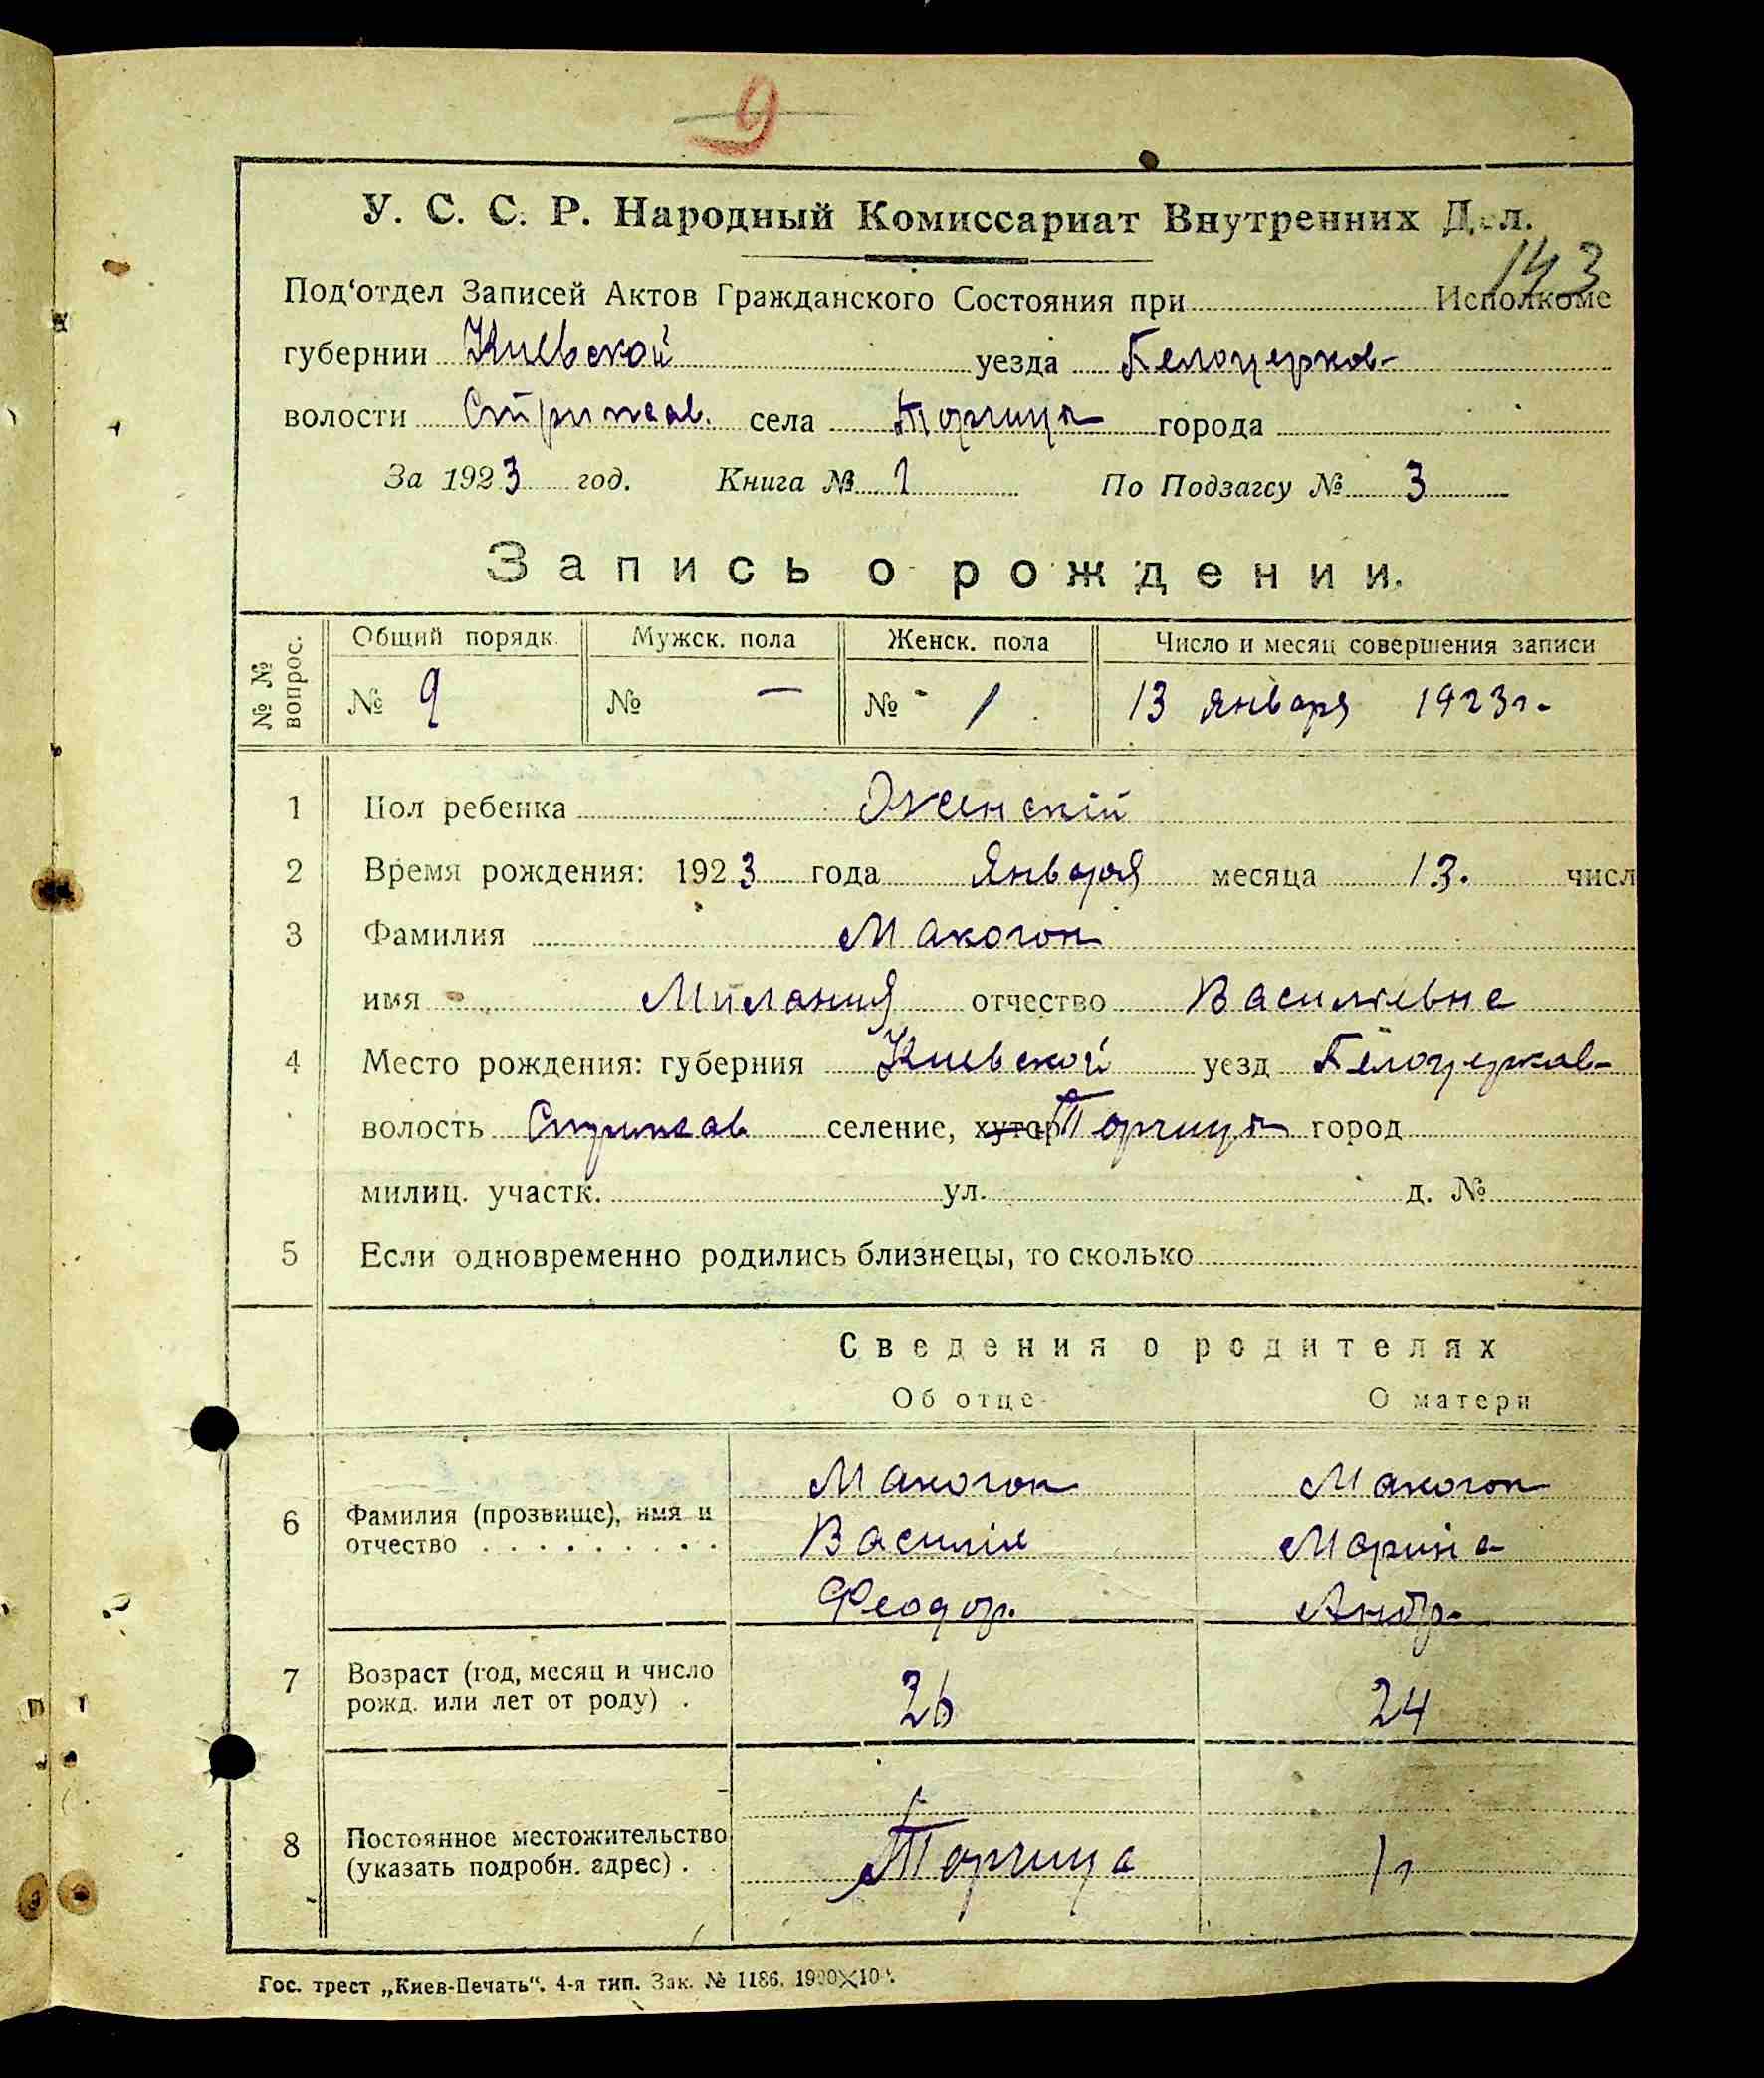 9
У. С. С. Р. Народный Комиссариат Внутренних Дел.
143
Под‘отдел Записей Актов Гражданского Состояния при Исполкоме
губернии Киевской уезда Белоцерков-
волости Стрижав. села Торчица города
За 1923 год. Книга № 1 По Подзагсу № 3
Запись о рождении.
№ № вопрос. Общий порядк. Мужск. пола Женск. пола Число и месяц совершения записи
№ 9 № — № 1 13 января 1923 г.
1 Пол ребенка Женскій
2 Время рождения: 1923 года Января месяца 13. числ
3 Фамилия Макогон
имя Милания отчество Васильевна
4 Место рождения: губерния Киевской уезд Белоцерков-
волость Стрижав селение, хутор Торчица город
милиц. участк. ул. д. №
5 Если одновременно родились близнецы, то сколько
Сведения о родителях
Об отце О матери
Макогон Макогон
6 Фамилия (прозвище), имя и отчество Василій Марина
Феодор. Андр.
7 Возраст (год, месяц и число рожд. или лет от роду) . 26 24
8 Постоянное местожительство (указать подробн. адрес) . Торчица
Гос. трест „Киев-Печать“. 4-я тип. Зак. № 1186.